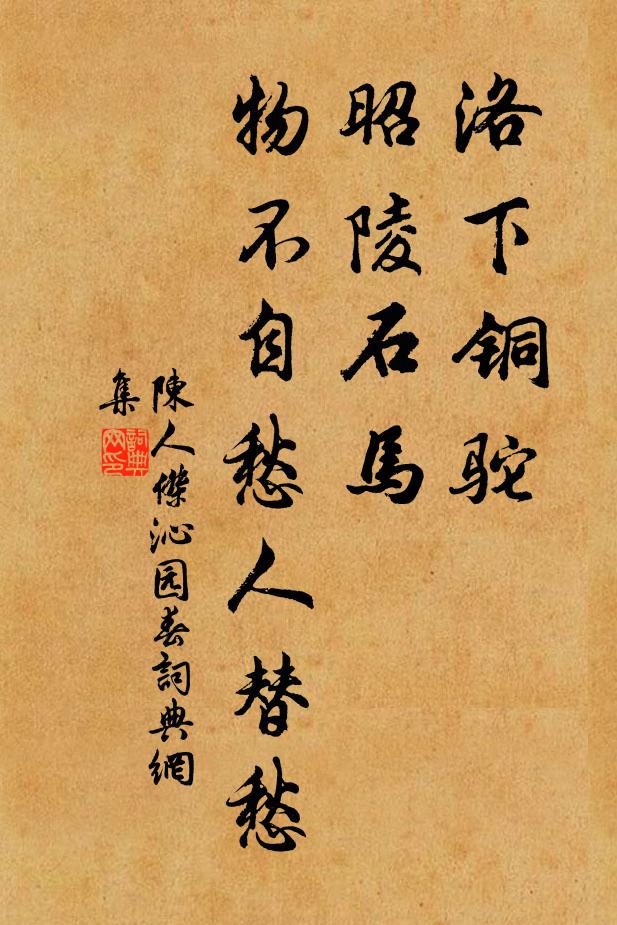 洛下铜驼
昭陵石馬
物不自愁人替愁
陳人傑沁园春詞典網
集
詞典网印